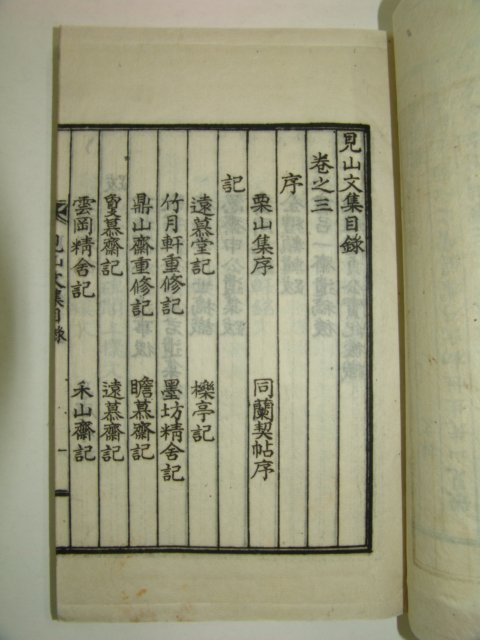 見山文集目錄
卷之三
序
栗山集序 同蘭契帖序
記
遠慕堂記 櫟亭記
竹月軒重修記 墨坊精舍記
鼎山齋重修記 瞻慕齋記
敻慕齋記 遠慕齋記
雲岡精舍記 禾山齋記
見山文集目錄 一